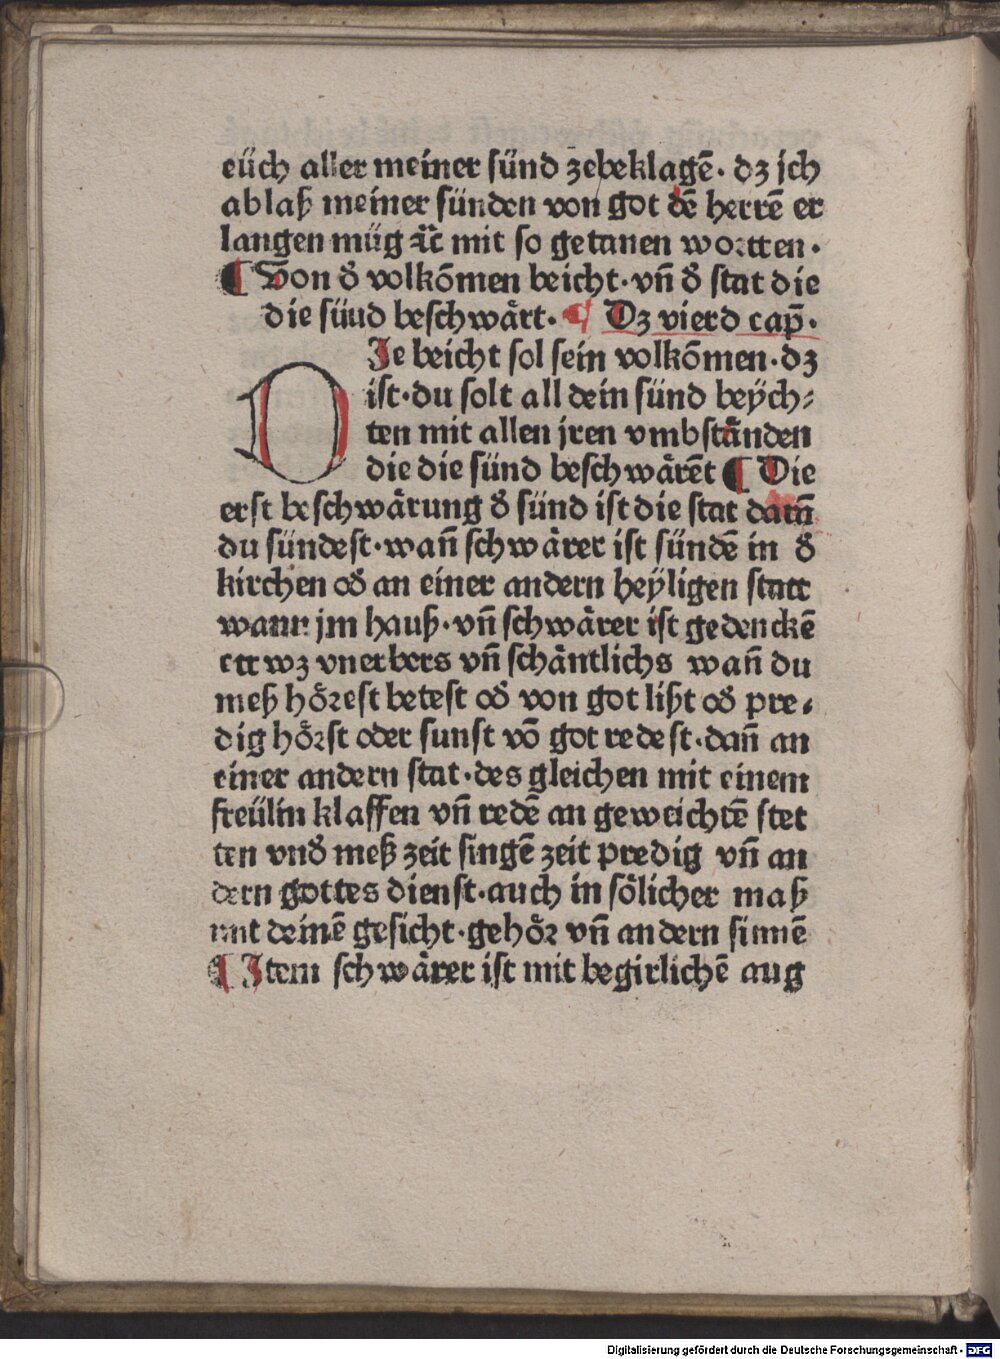 eüch aller meiner sünd zebeklagē· dz ich
ablaß meiner sünden von got dē herrē er
langen müg ꝛc̄ mit so getanen wortten·
¶ Von d̕ volkōmen beicht· vn̄ d̕ stat die
die süud beschwärt· ¶ Dz vierd cap̄·
DIe beicht sol sein volkōmen· dz
ist· du solt all dein sünd beÿch⸗
ten mit allen jren vmbständen
die die sünd beschwärēt ¶ Die
erst beschwärung d̕ sünd ist die stat darīn
du sündest· wan̄ schwärer ist sündē in d̕
kirchen od̕ an einer andern heÿligen statt
wann jm hauß· vn̄ schwärer ist gedenckē
ettwz vnerbers vn̄ schäntlichs wan̄ du
meß hörest betest od̕ von got lißt od̕ pre⸗
dig hörst oder sunst vō got redest· dan̄ an
einer andern stat· des gleichen mit einem
freülin klaffen vn̄ redē an geweichtē stet
ten vnd̕ meß zeit singē zeit predig vn̄ an
dern gottes dienst· auch in sölicher maß
mit deinē gesicht· gehör vn̄ andern sinnē
¶ Item schwärer ist mit begirlichē aug
Digitalisierung gefördert durch die Deutsche Forschungsgemeinschaft - DFG